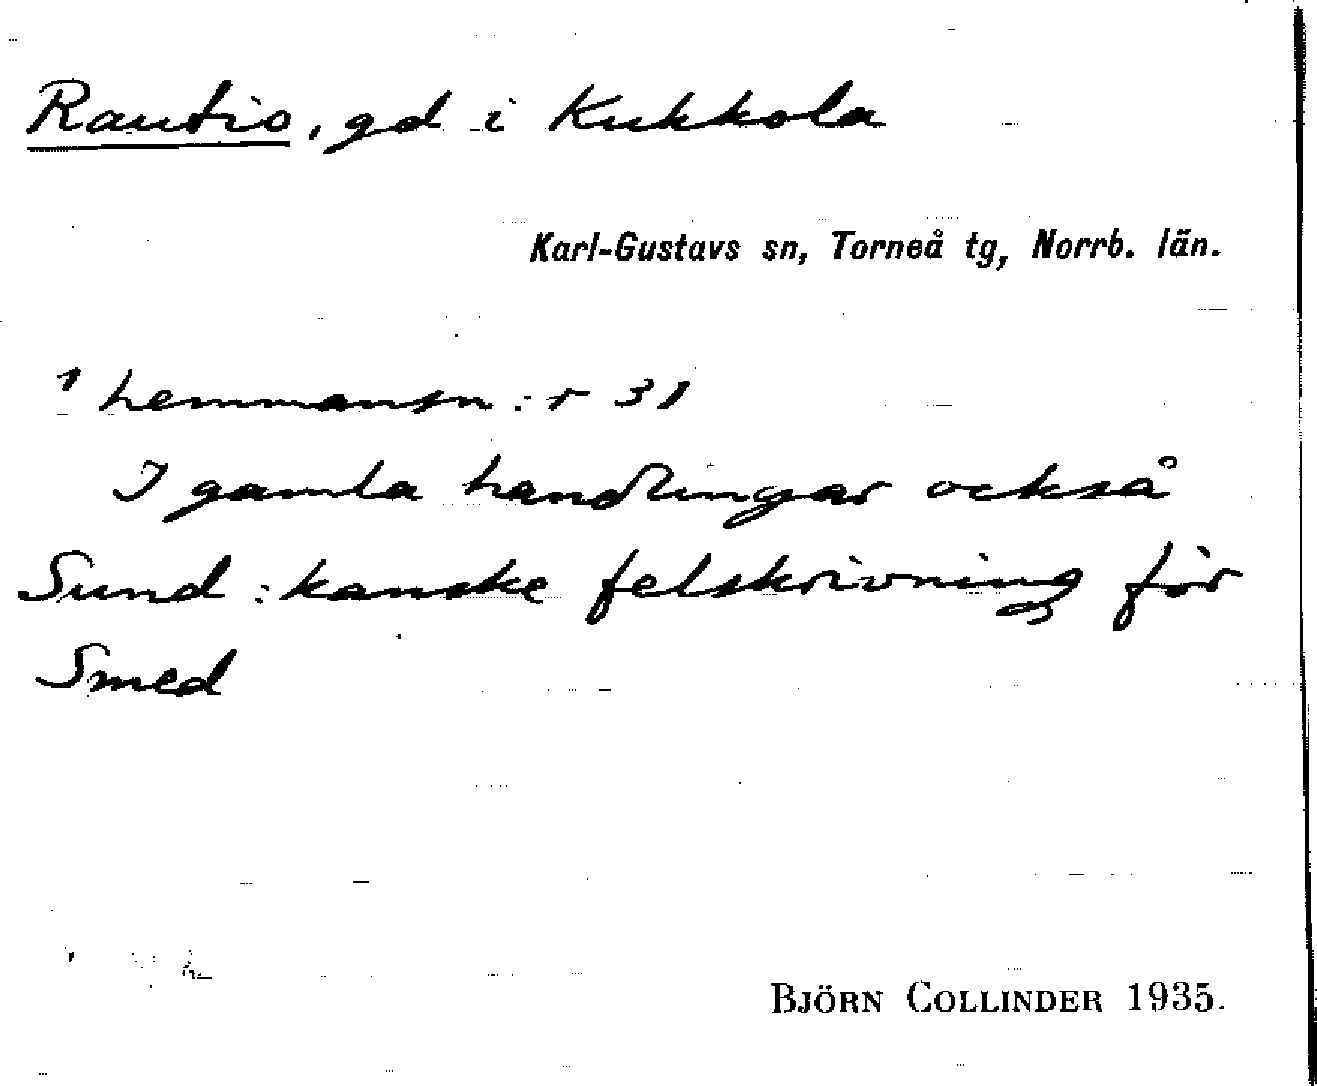 Rautio, gd i Kukkola
Karl-Gustavs sn, Torneå tg, Norrb. län.
1 hemmansn:r 31
I gamla handlingar också
Sund: kanske felskrivning för
Smed
BJÖRN COLLINDER 1935.